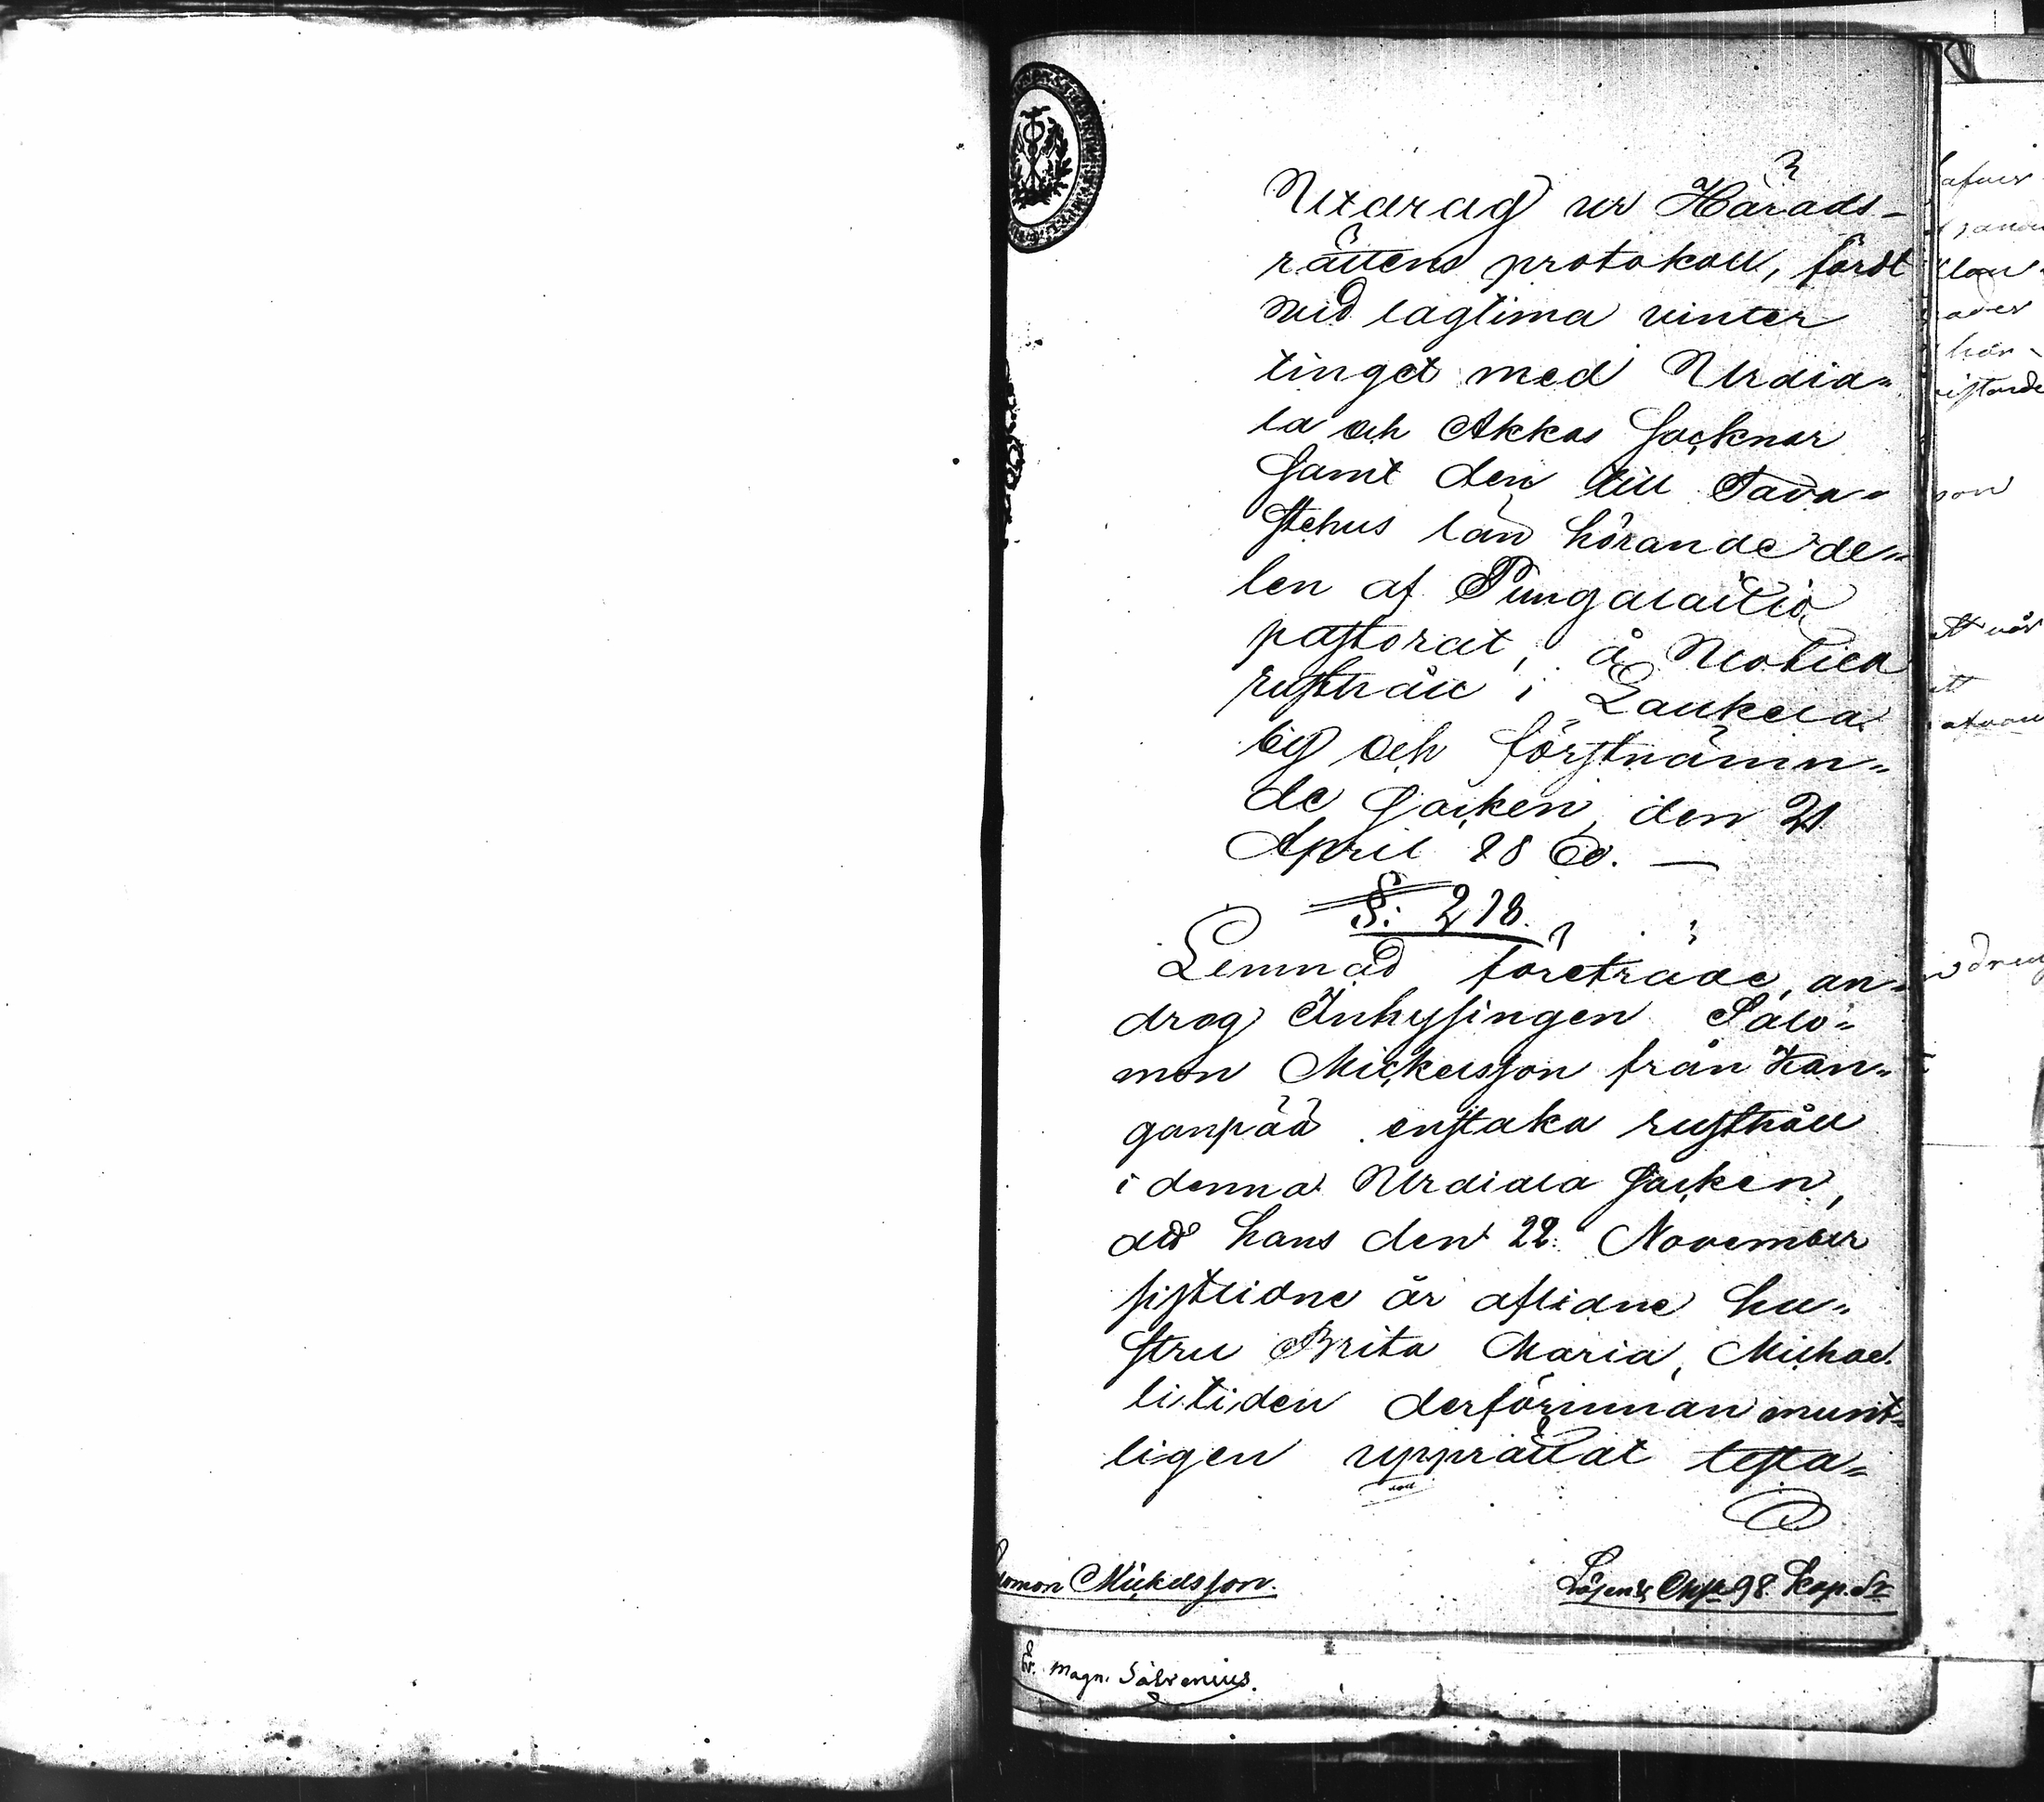 Utdrag ur Härads-
rättens protokoll, fördt
vid lagtima vinter
tinget med Urdia-
la och Akkas Socknar
samt den till Tava-
stehus län hörande de-
len af Pungalaitio
pastorat, å Uotila
rusthåll i Laukela
by och förstnämn-
de Socken, den 21
April 1860. —
§: 218.
Lemnad företräde, an-
drog Inhysingen Salo-
mon Mickelsson från Kan-
ganpää enstaka rusthåll
i denna Urdiala Socken,
att hans den 22 November
sistlidne år aflidne hu-
stru Brita Maria, Michae-
litiden derförinnan munt-
ligen upprättat testa-
lomon Mickelsson.
Lösen 98 Kop. Sr
Magn. Salvenius.